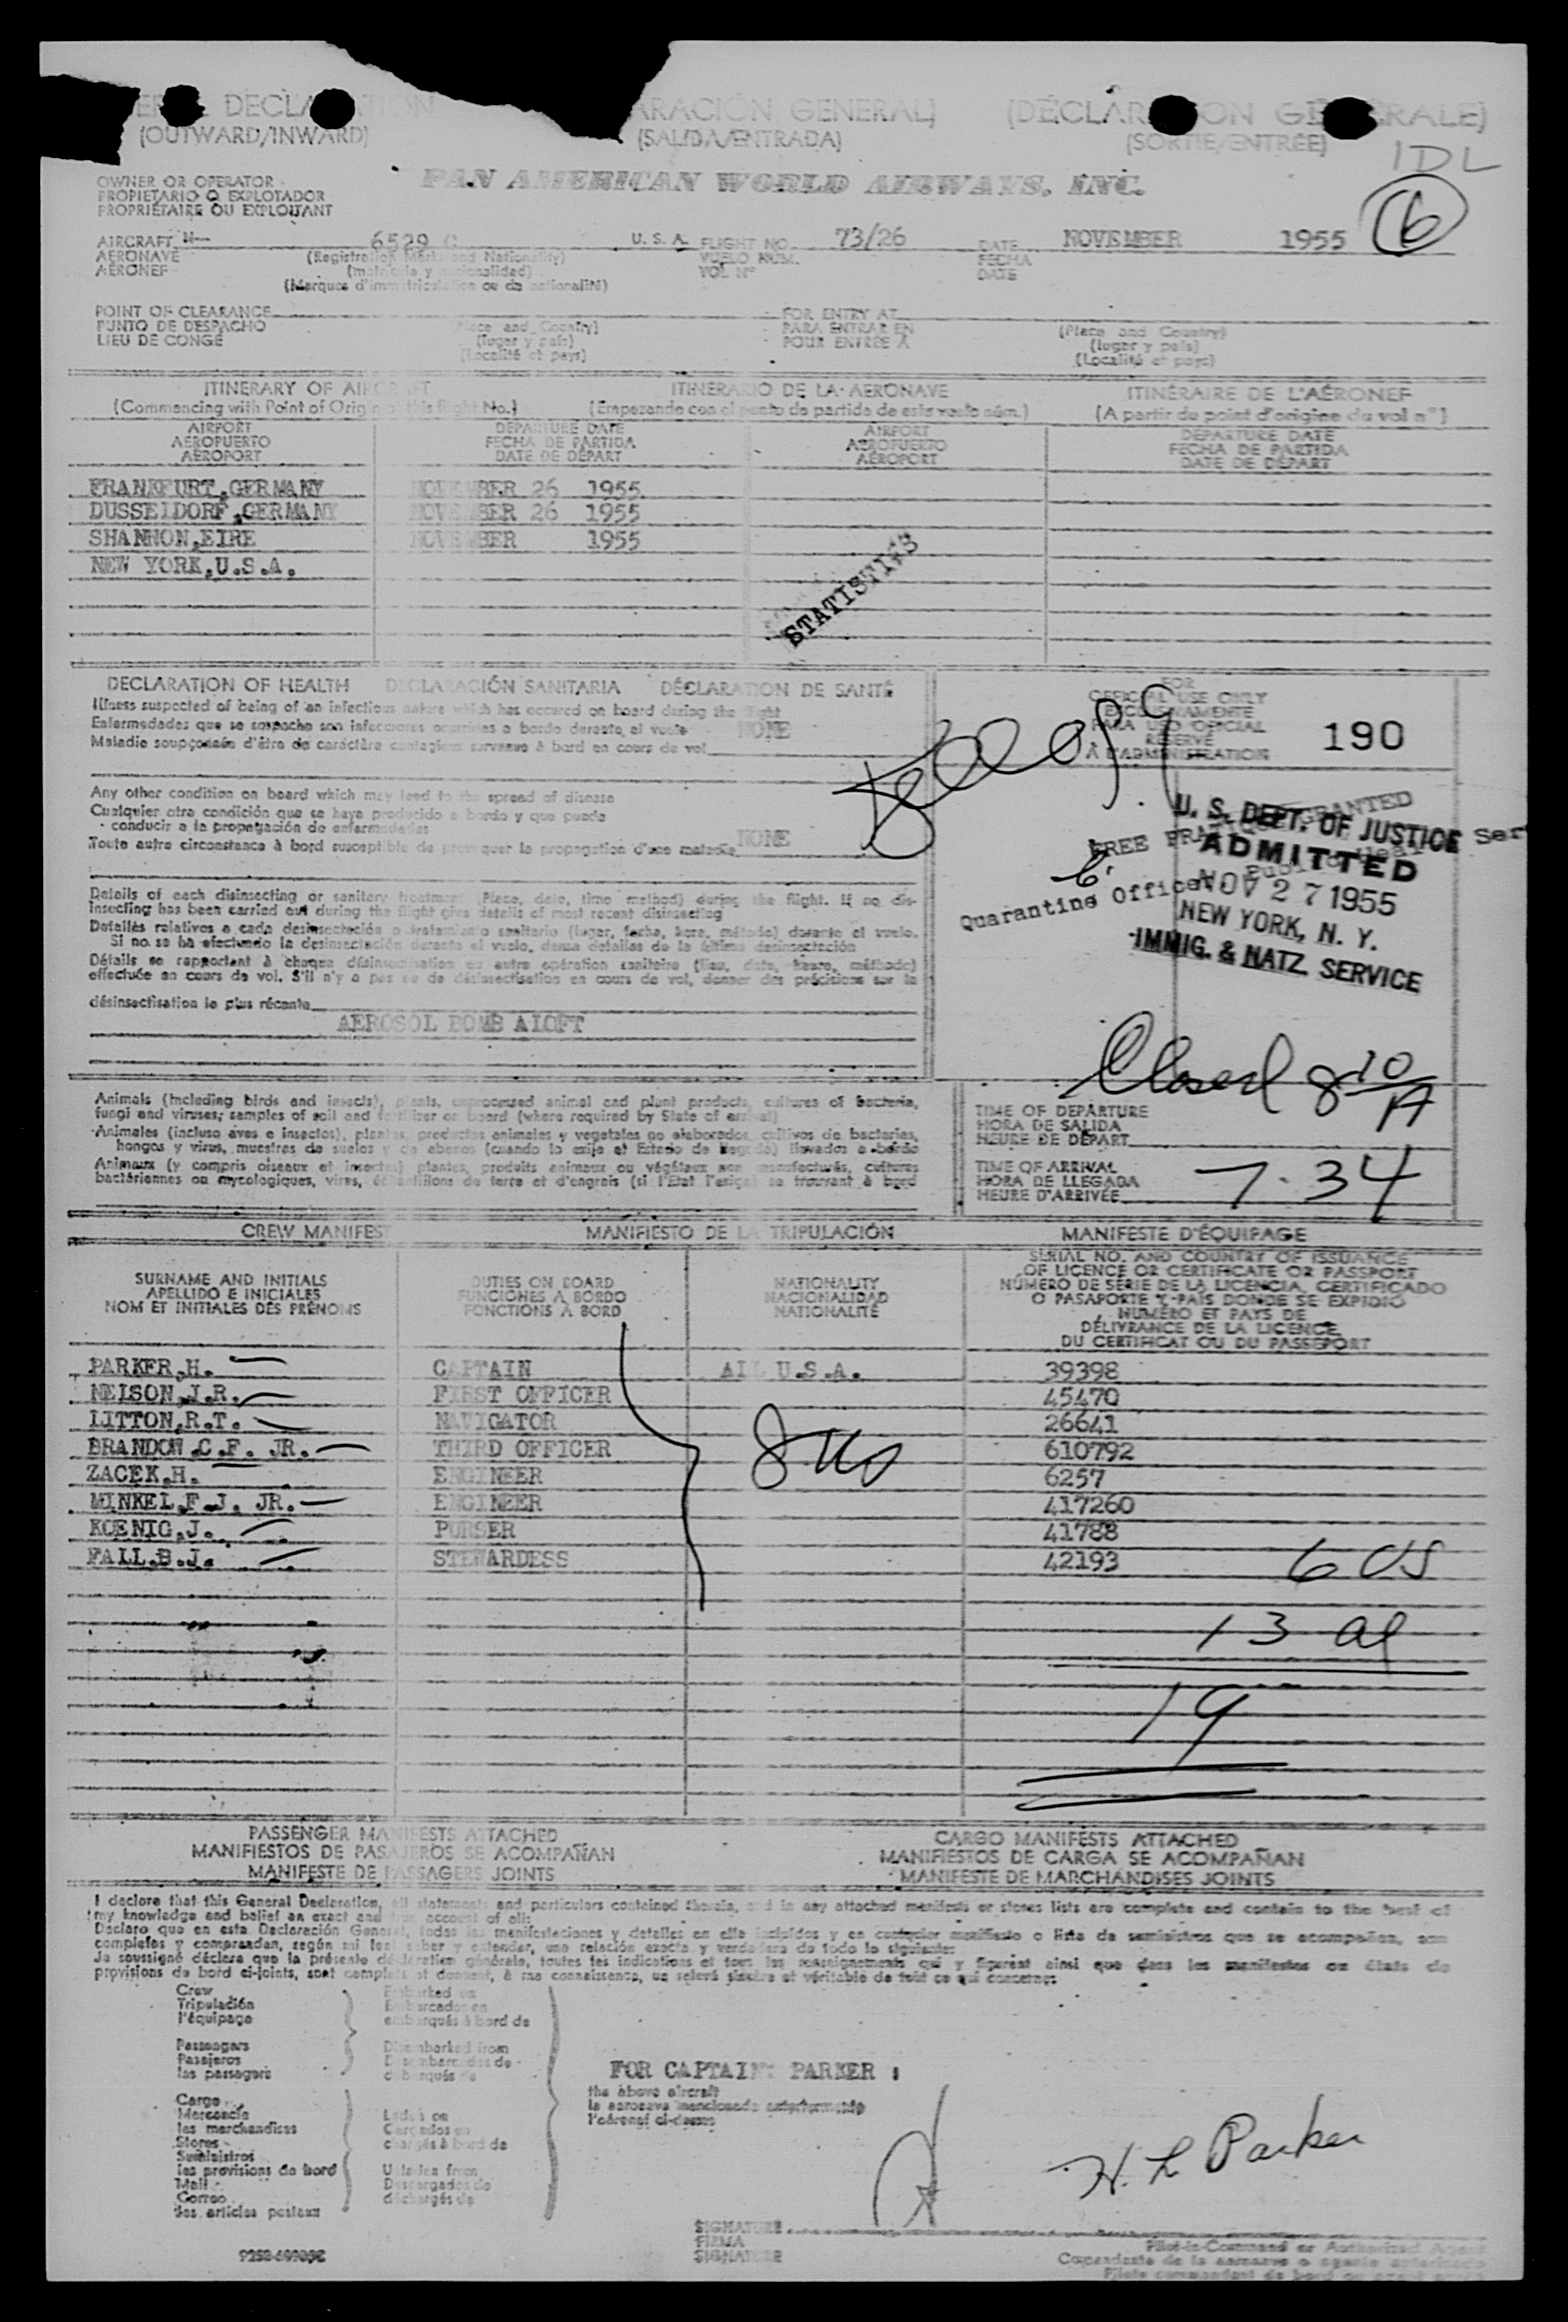 DECLA
ARACIÓN GENERAL)
(OUTWARD/INWARD)
(SALIDA/ENTRADA)
(SORTIE/ENTRÉE)
IDL
6
OWNER OR OPERATOR
PROPIETARIO O EXPLOTADOR
PROPRIÉTAIRE OU EXPLOITANT
PAN AMERICAN WORLD AIRWAYS, INC.
AIRCRAFT N- 6529 C U. S. A. FLIGHT NO. 73/26 DATE NOVEMBER 1955
AÉRONAVE (Registration Marks and Nationality) VUELO NUM. FECHA
AÉRONEF (matricula y nacionalidad) VOL N° DATE
(Marques d'immatriculation ou de nationalité)
POINT OF CLEARANCE FOR ENTRY AT
PUNTO DE DESPACHO (Place and Country) PARA ENTRAR EN (Place and Country)
LIEU DE CONGÉ (lugar y pais) POUR ENTRÉE A (lugar y pais)
(Localité et pays) (Localité et pays)
ITINERARY OF AIRCRAFT ITINERARIO DE LA AERONAVE ITINÉRAIRE DE L'AÉRONEF
(Commencing with Point of Origin of this flight No.) (Empezando con el punto de partida de este vuelo núm.) (A partir du point d'origine du vol n°)
AIRPORT DEPARTURE DATE AIRPORT DEPARTURE DATE
AEROPUERTO FECHA DE PARTIDA AEROPUERTO FECHA DE PARTIDA
AÉROPORT DATE DE DÉPART AÉROPORT DATE DE DÉPART
FRANKFURT,GERMANY NOVEMBER 26 1955
DUSSELDORF,GERMANY NOVEMBER 26 1955
SHANNON,EIRE NOVEMBER 1955
NEW YORK,U.S.A.
STATISTICS
DECLARATION OF HEALTH DECLARACIÓN SANITARIA DÉCLARATION DE SANTÉ
Illness suspected of being of an infectious nature which has occured on board during the flight
Enfermedades que se sospecha son infecciosas ocurridas a bordo durante el vuelo NONE
Maladie soupçonnée d'être de caractère contagieux survenue à bord en cours de vol
FOR
OFFICIAL USE ONLY
EXCLUSIVAMENTE
PARA USO OFICIAL
RÉSERVÉ
À L'ADMINISTRATION
190
Any other condition on board which may lead to the spread of disease
Cualquier otra condición que se haya producido a bordo y que pueda
conducir a la propagación de enfermedades
Toute autre circonstance à bord susceptible de provoquer la propagation d'une maladie NONE
FREE PRATIQUE GRANTED
Quarantine Officer
U. S. DEPT. OF JUSTICE
ADMITTED
NOV 27 1955
NEW YORK, N. Y.
IMMIG. & NATZ. SERVICE
Details of each disinsecting or sanitary treatment (Place, date, time method) during the flight. If no dis-
insecting has been carried out during the flight give details of most recent disinsecting
Detalles relativos a cada desinsectación o tratamiento sanitario (lugar, fecha, hora, método) durante el vuelo.
Si no se ha efectuado la desinsectación durante el vuelo, dense detalles de la última desinsectación
Détails se rapportant à chaque désinsectisation ou autre opération sanitaire (lieu, date, heure, méthode)
effectuée en cours de vol. S'il n'y a pas eu de désinsectisation en cours de vol, donner des précisions sur la
désinsectisation la plus récente
AEROSOL BOMB ALOFT
Closed 8 10/A
Animals (including birds and insects), plants, unprocessed animal and plant products, cultures of bacteria,
fungi and viruses; samples of soil and fertilizer on board (where required by State of arrival)
Animales (incluso aves e insectos), plantas, productos animales y vegetales no elaborados, cultivos de bacterias,
hongos y virus, muestras de suelos y de abonos (cuando lo exija el Estado de llegada) llevados a bordo
Animaux (y compris oiseaux et insectes) plantes, produits animaux ou végétaux non manufacturés, cultures
bactériennes ou mycologiques, virus, échantillons de terre et d'engrais (si l'Etat l'exige) se trouvant à bord
TIME OF DEPARTURE
HORA DE SALIDA
HEURE DE DÉPART
TIME OF ARRIVAL
HORA DE LLEGADA
HEURE D'ARRIVÉE
7.34
CREW MANIFEST MANIFIESTO DE LA TRIPULACIÓN MANIFESTE D'ÉQUIPAGE
SURNAME AND INITIALS
APELLIDO E INICIALES
NOM ET INITIALES DES PRÉNOMS
DUTIES ON BOARD
FUNCIONES A BORDO
FONCTIONS À BORD
NATIONALITY
NACIONALIDAD
NATIONALITÉ
SERIAL NO. AND COUNTRY OF ISSUANCE
OF LICENCE OR CERTIFICATE OR PASSPORT
NÚMERO DE SERIE DE LA LICENCIA, CERTIFICADO
O PASAPORTE Y PAÍS DONDE SE EXPIDIÓ
NUMÉRO ET PAYS DE
DÉLIVRANCE DE LA LICENCE
DU CERTIFICAT OU DU PASSEPORT
PARKER,H. CAPTAIN ALL U.S.A. 39398
NELSON,J.R. FIRST OFFICER 45470
LITTON,R.T. NAVIGATOR 26641
BRANDOW.C.F. JR. THIRD OFFICER 610792
ZACEK,H. ENGINEER 6257
MINKEL,F.J. JR. ENGINEER 417260
KOENIG,J. PURSER 41788
FALL.B.J. STEWARDESS 42193
6 US
13 al
19
PASSENGER MANIFESTS ATTACHED CARGO MANIFESTS ATTACHED
MANIFIESTOS DE PASAJEROS SE ACOMPAÑAN MANIFIESTOS DE CARGA SE ACOMPAÑAN
MANIFESTE DE PASSAGERS JOINTS MANIFESTE DE MARCHANDISES JOINTS
I declare that this General Declaration, all statements and particulars contained therein, and in any attached manifests or stores lists are complete and contain to the best of
my knowledge and belief an exact and true account of all:
Declaro que en esta Declaración General, todas las manifestaciones y detalles en ella incluidos y en cualquier manifiesto o lista de suministros que se acompañan, son
completos y comprenden, según mi leal saber y entender, una relación exacta y verdadera de todo lo siguiente:
Je soussigné déclare que la présente déclaration générale, toutes les indications et tous les renseignements qui y figurent ainsi que dans les manifestes ou états de
provisions de bord ci-joints, sont complets et donnent, à ma connaissance, un relevé sincère et véritable de tout ce qui concerne:
Crew Embarked on
Tripulación Embarcados en
l'équipage embarqués à bord de
Passengers Disembarked from
Pasajeros Desembarcados de
les passagers débarqués de
FOR CAPTAIN: PARKER :
the above aircraft
la aeronave mencionada anteriormente
l'aéronef ci-dessus
Cargo
Mercancía Laden on
les marchandises Cargados en
Stores chargés à bord de
Suministros
les provisions de bord Unladen from
Mail Descargados de
Correo déchargés de
les articles postaux
H. L Parker
SIGNATURE
FIRMA
SIGNATURE
Pilot-in-Command or Authorized Agent
Comandante de la aeronave o agente autorizado